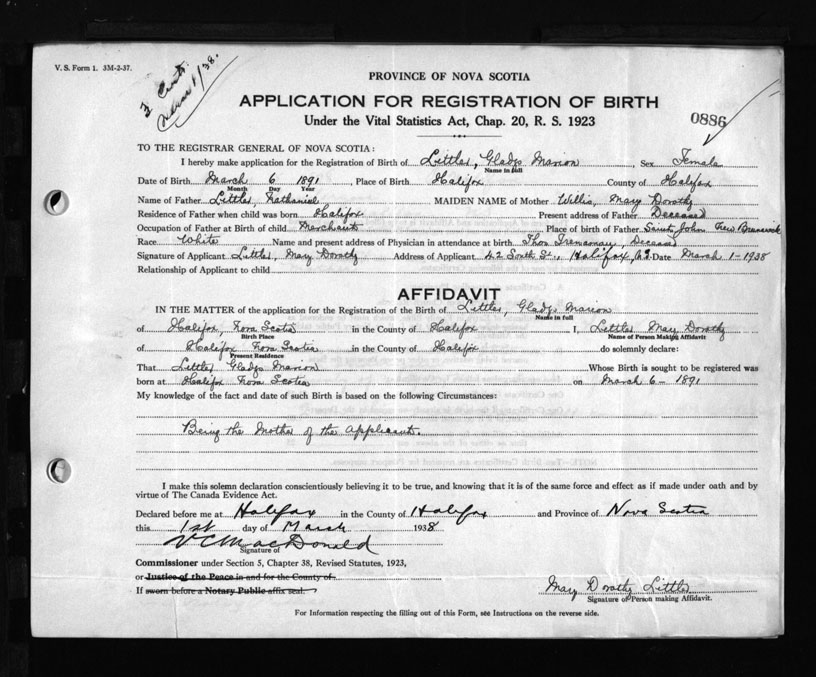 V. S. Form 1. 3M-2-37.
March 1/38.
PROVINCE OF NOVA SCOTIA
APPLICATION FOR REGISTRATION OF BIRTH
0886
Under the Vital Statistics Act, Chap. 20, R. S. 1923
TO THE REGISTRAR GENERAL OF NOVA SCOTIA:
I hereby make application for the Registration of Birth of Littler, Gladys Marion Sex Female
Name in full
Date of Birth March 6 1891, Place of Birth Halifax County of Halifax
Month Day Year
Name of Father Littler, Nathaniel MAIDEN NAME of Mother Willis, Mary Dorothy
Residence of Father when child was born Halifax Present address of Father Deceased
Occupation of Father at Birth of child Merchant Place of birth of Father Saint John New Brunswick
Race White Name and present address of Physician in attendance at birth Thos Trenaman, Deceased
Signature of Applicant Littler, Mary Dorothy Address of Applicant 42 South St., Halifax, N.S. Date March 1-1938
Relationship of Applicant to child
AFFIDAVIT
IN THE MATTER of the application for the Registration of the Birth of Littler, Gladys Marion
Name in full
of Halifax, Nova Scotia in the County of Halifax I, Littler Mary Dorothy
Birth Place Name of Person Making Affidavit
of Halifax Nova Scotia in the County of Halifax do solemnly declare:
Present Residence
That Littler Gladys Marion Whose Birth is sought to be registered was
born at Halifax Nova Scotia on March 6-1891
My knowledge of the fact and date of such Birth is based on the following Circumstances:
Being the Mother of the applicant.
I make this solemn declaration conscientiously believing it to be true, and knowing that it is of the same force and effect as if made under oath and by
virtue of The Canada Evidence Act.
Declared before me at Halifax in the County of Halifax and Province of Nova Scotia
this 1st day of March 1938
V C MacDonald
Signature of
Commissioner under Section 5, Chapter 38, Revised Statutes, 1923,
or Justice of the Peace in and for the County of
If sworn before a Notary Public affix seal.
Mary Dorothy Littler
Signature of Person making Affidavit.
For Information respecting the filling out of this Form, see Instructions on the reverse side.